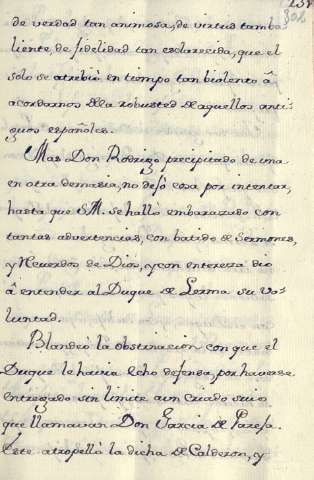 de verdad tan animosa, de virtud tamba-
liente, de fidelidad tan esclarecida, que el
solo se atrebió en tiempo tan biolento â
acordarnos dela robusted deaquellos anti-
guos españoles.
Mas Don Rodrigo precipitado de una
en otra demasia, no dejó cosa por intentar,
hasta que S.M. se halló embarazado con
tantas advertencias, con batido de Sermones,
y Recuerdos de Dios, y con entereza dio
â entender al Duque de Lerma su vo-
luntad.
Blandeó la obstinacion con que el
Duque le havia echo defensa, por haverse
entregado sin limite aun criado suio
que llamavan Don Garcia de Pareja.
Este atropelló la dicha de Calderon, y